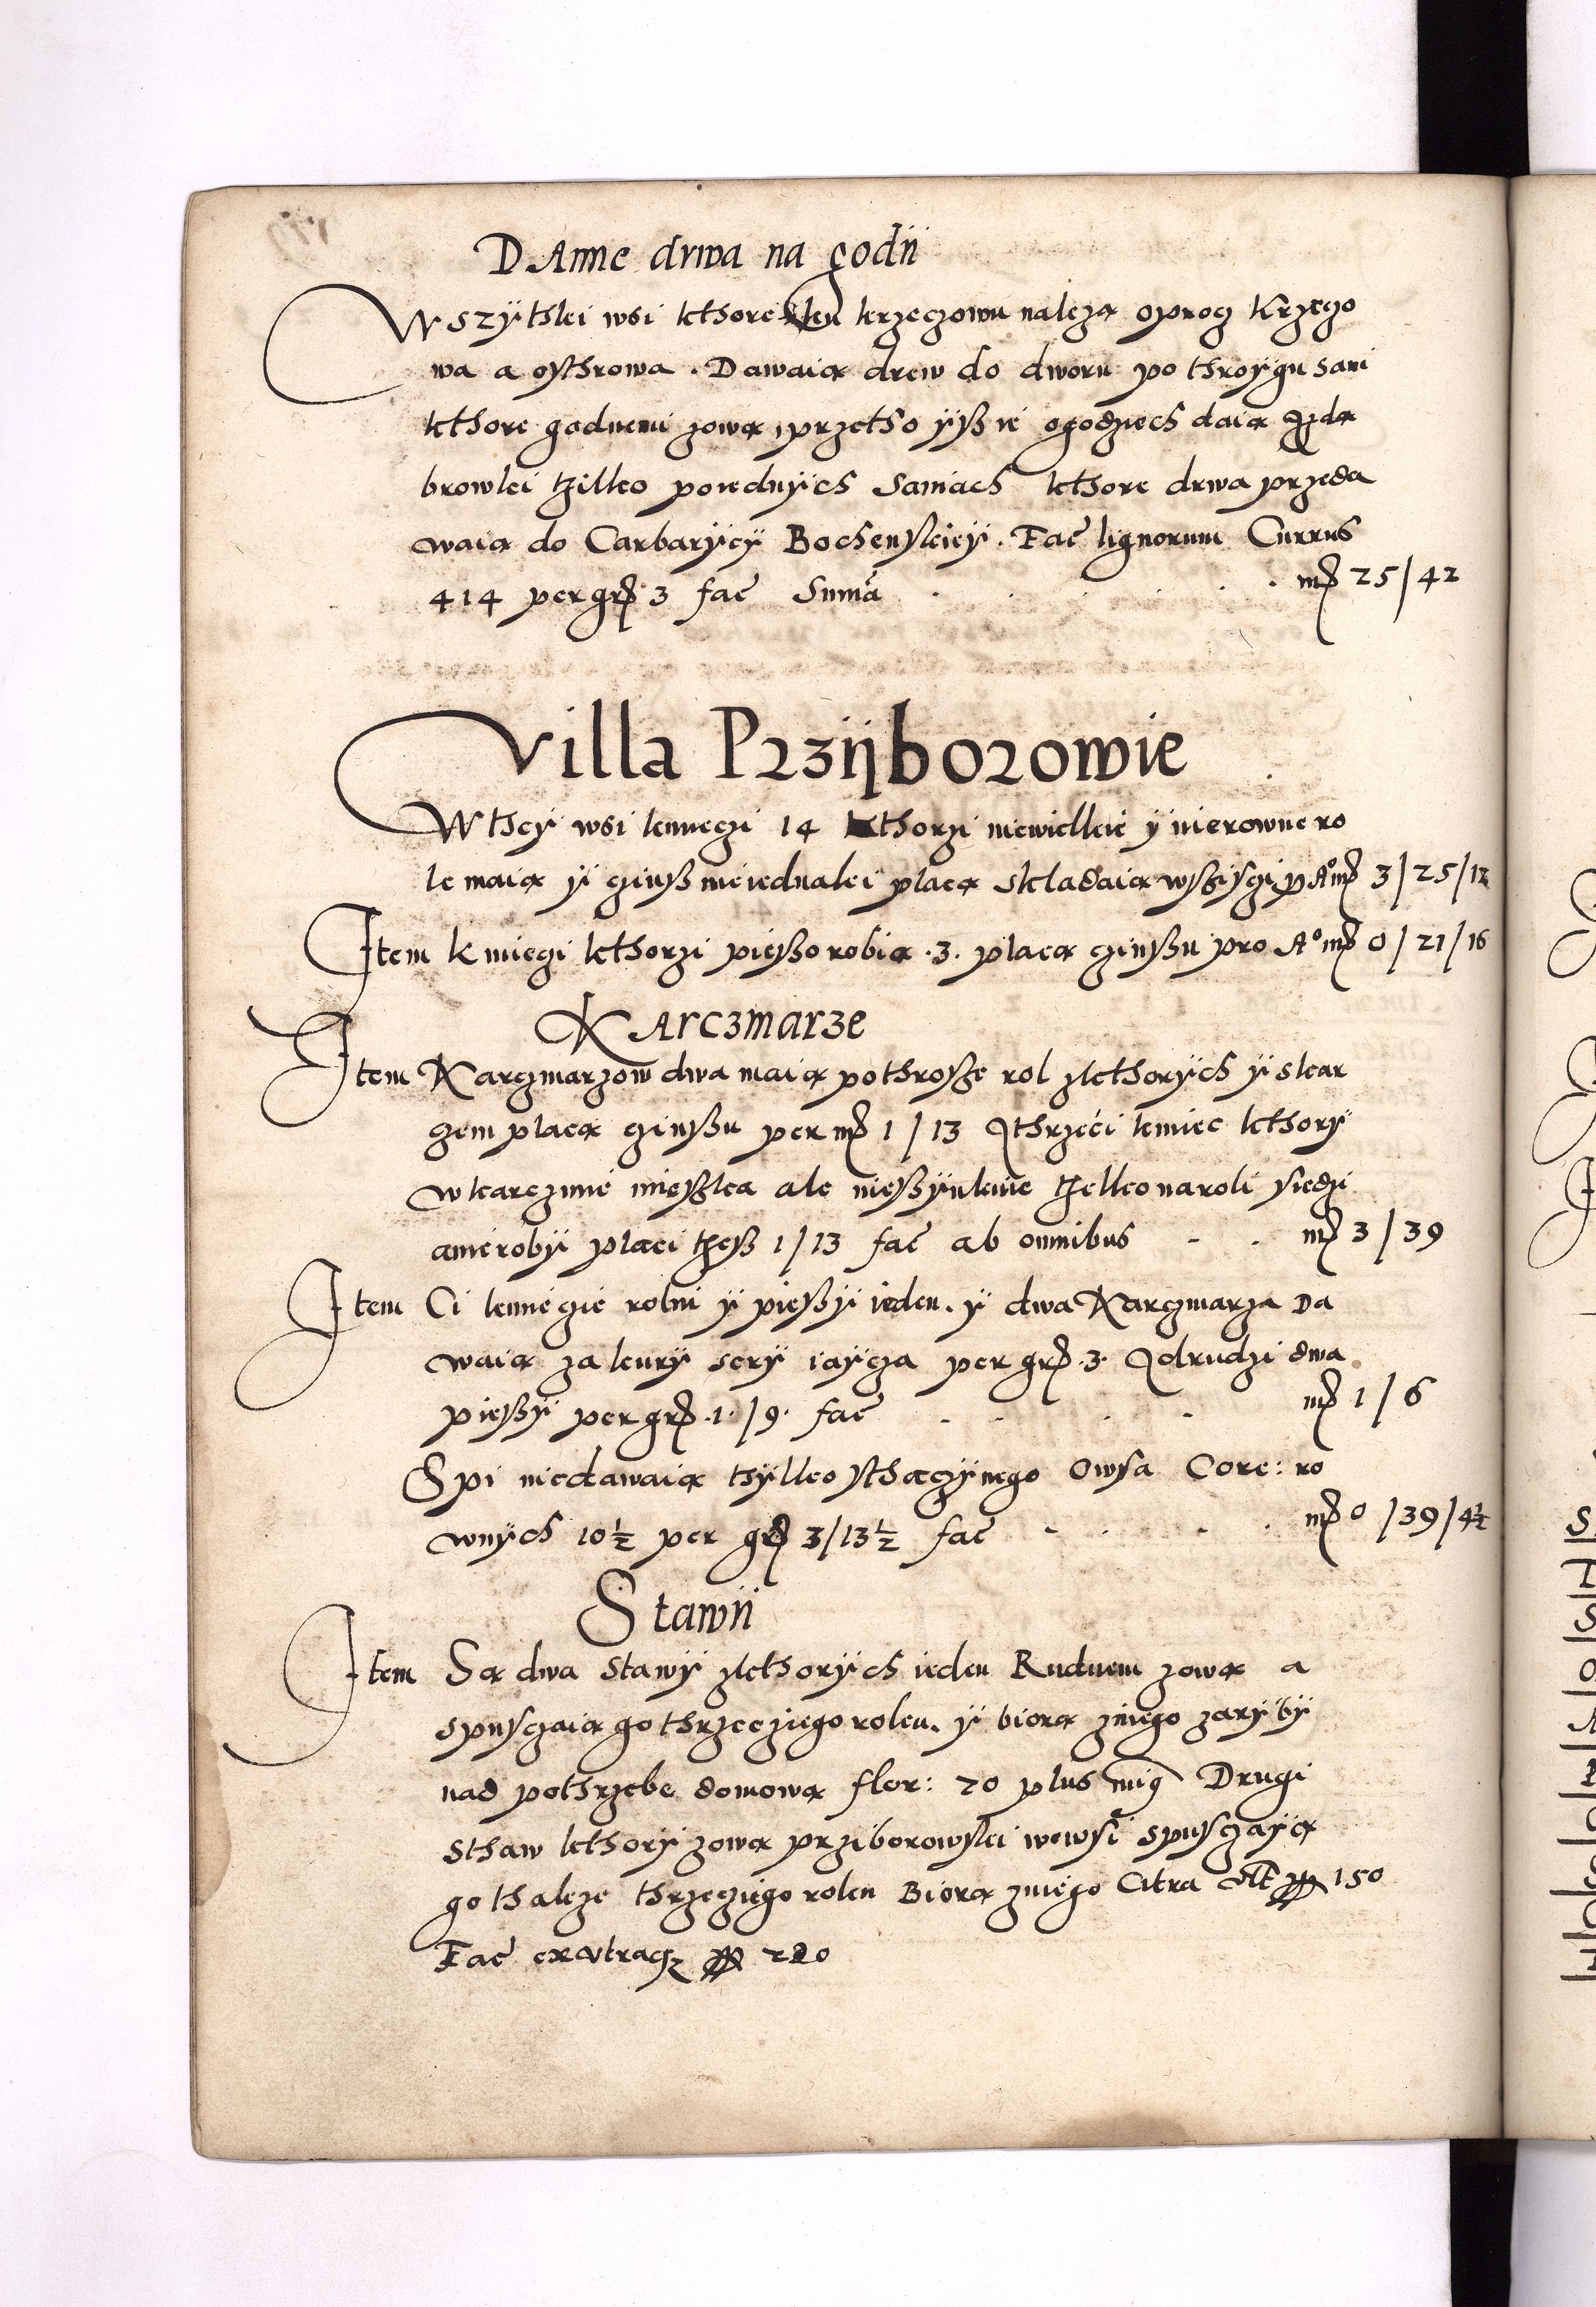 DAnne drwa na godÿ
Wszÿthki wsi kthore ku krzeczowu należą oprocz Krzeczo
wa a osthrowa. Dawaią drew do dworu po throÿgu sani
kthore godnemi zową, przetho ÿsz ie ogodziech daią
browki tzilko poiednÿch Saniach kthore drwa przeda
waią do Carbarÿcÿ Bochenskieÿ. Fac̃ lignorum Currus
414 per gr̃ 3 fac̃ Suma . . . . . mr̃ 25/42
Villa Przÿborowie
W theÿ wsi kmieczi 14 kthorzi niewielkie ÿ nierowne ro
le maią ÿ czinsz nieiednaki płacą składaią wszisczi p Aº mr̃ 3/25/12
Item kmieczi kthorzi pieszo robią .3. płacą czinszu pro Aº mr̃ 0/21/16
KArczmarze
Item Karczmarzow dwa maią pothrosze rol zkthorÿch ÿ skar
czem płacą czinszu per mr̃ 1/13 Ithrzeci kmiec kthorÿ
wkarczmie mieszka ale nieszÿnkuie tzelko naroli siedzi
anierobÿ płaci tzesz 1/13 fac̃ ab omnibus - . mr̃ 3/39
Item Ci kmieczie rolni ÿ pieszÿ ieden. ÿ dwa Karczmarza Da
waią za kurÿ serÿ iaÿcza per gr̃ .3. Idrudzi dwa
pieszÿ per gr̃ .1./9. fac̃ . . . . mr̃ 1/6
Spi niedawaią thÿlko sthaczÿnego Owsa Core: ro
wnÿch 10½ per gr̃ 3/13½ fac̃ - . . . mr̃ 0/39/4½
Stawÿ
Item Są dwa Stawÿ zkthorÿch ieden Rudnem zową a
spusczaią go thrzecziego roku. ÿ biorą zniego zarÿbÿ
nad pothrzebę domową flor: 70 plus Drugi
Sthaw kthorÿ zową prziborowski wewsi spusczaÿą
go thakze thrzecziego roku Biorą zniego Citra 150
Fac̃ ex utraq 220